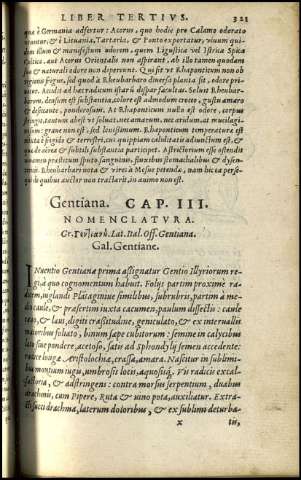 LIBER TERTIVS. 321
quæ è Germania adfertur: Acorus, quo hodie pro Calamo odorato
utuntur, è Lituania, Tartaria, & Ponto exportatur, vivum quibusdam
illum & manifestum odorem, quem Ligustica vel Istrica Spica
Celtica, aut Acorus Orientalis non aspirant, ab illo tamen quodam
suo & naturali odore non deperunt. Qui sit ut Rhaponticum non ib
orrans feratur, sed quod à Rhabarbaro diversa planta sit, odore privetur.
Accedit ad hæc radicum istarū dispar facultas. Solvit Rhabarbarum,
densum est substantia, colore est admodum croceo, gustu amaro
& dissecante, ponderosum. At Rhaponticum nulla est odore, corpus
strengis, tantum abest vt solvat, nec amarum, nec aridum, at mucilaginosum:
grave non est, sed levissimum. Rhaponticum temperatura est
mixta è frigida & terrestri, cui quippiam caliditatis adiunctum est, &
quædā aërea & subtili substantia participat. Astrictionem esse ostendit
unum proditum sputo sanguinis, fluxibus stomachalibus & dysenteriis.
Rhabarbari nota & vires à Mesue petendæ, nam hic ta perse
qui de quibus auctor non tractarit, in animo non est.
Gentiana. CAP. III.
NOMENCLATVRA.
Gr. Γεντιανή. Lat. Ital. Off. Gentiana.
Gal. Gentiane.
INuentio Gentianæ prima assignatur Gentio Illyriorum regi,
à quo cognomentum habuit. Folijs partim proxime radicem,
iuglandi Plataginiue similibus, subrubris, partim à medio
caule, & præsertim iuxta cacumen, paulum dissectis: caule
vacuo, & laui, digiti crassitudine, geniculato, & ex interuallis
maioribus foliato, binûm sæpe cubitorum: semine in calycibus
lato suo pondere, acetoso, satis ad Sphondylij semen accedente:
radice longa Aristolochiæ, crassa, amara. Nascitur in sublimibus
montium iugis, umbrosis locis, aquosisq́. Vis radicis excalfactoria,
& adstringens: contra morsus serpentium, duabus
drachmis, cum Pipere, Ruta & vino pota, auxiliatur. Extracti
succi drachma, laterum doloribus, & ex sublimi deturba-
x iiij,